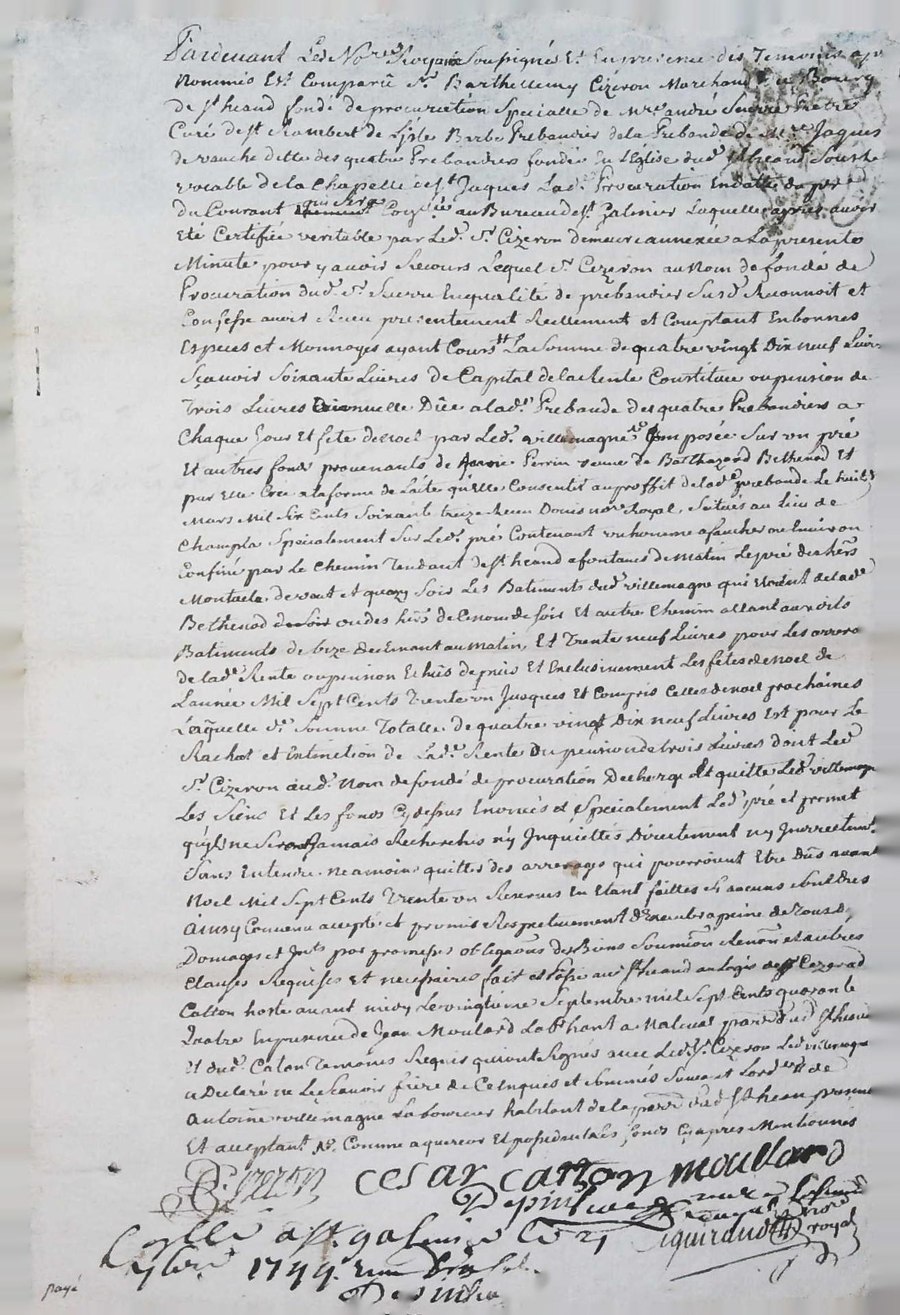 Pardevant Les No.res Royaux Soussignés Et En presence des Temoins apr
Nommés Est Comparû S.r Barthellemy Cizeron Marchand du Bourg
de S.t heand fondé de procuration Specialle de M.re andré Pretre
Curé de S.t Rambert de L'isle Barbe Prebandier de la Prebande de M.re Jaques
de vauche ditte des quatre Prebandiers fondée En L'Eglise dud. S.t heand Sous Le
vocable de la Chapelle de S.t Jaques Lad. Procuration En datte du p.er
du Courant Coll.ée au Bureau de S.t Galmier Laquelle après avoir
Eté Certifiée veritable par Led. S.r Cizeron demeure annexée a La presente
Minute pour y avoir Recours Lequel S.r Cizeron au Nom de fondé de
Procuration dud. S.r En qualité de prebandier Susd. Reconnoit et
Confesse avoir Recu presentement Reellement et Comptant En bonnes
Especes et Monnoyes ayant Cours La Somme de quatre vingt Dix neuf Livres
Sçavoir Soixante Livres de Capital de la Rente Constituée ou pension de
Trois Livres Dûe a lad. Prebande des quatre Prebandiers a
Chaque Jour Et fete de noel par Led. villemagne Imposée Sur un pré
Et autres fonds provenants de Perrin veuve de Balthazard Bethenod Et
par Elle Crée a la forme de L'acte qu'elle Consentit au proffit de lad. prebande Le huit
Mars Mil Six Cents Soixante treize Recu no.re Royal, Scitués au Lieu de
Champla Specialement Sur Led. pré Contenant un homme a faucher ou Environ
Confiné par Le Chemin Tendant de S.t heand a fontanes de Matin Le pré des hers
Montaela de vent et quazy Soir Les Batiments dud. villemagne qui Etoient de lad.
Bethenod de Soir ou des hers de Et autre Chemin allant auxdits
Batiments de bize declinant au Matin, Et Trente neuf Livres pour Les arrera
de lad. Rente ou pension Echûs depuis Et Exclusivement Les fêtes de Noel de
L'année Mil Sept Cents Trente un Jusques Et Compris Celles de noel prochaines
Laquelle d. Somme Totalle de quatre vingt Dix neuf Livres Est pour Le
Rachat et Extinction de Lad. Rente Ou pension de trois Livres dont Led.
S.r Cizeron aud. Nom de fondé de procuration Decharge Et quitte Led. villemagne
Les Siens Et Les fonds Cy dessus Enoncés et Specialement Led. pré et promet
qu'ils ne Seront Jamais Recherchés n'y Inquiettés Directement n'y Indirectement
Sans Entendre neamoins quitter des arrerages qui pourroient Etre Dûs avant
Noel Mil Sept Cents Trente un Reserves En Etant faittes Sy aucuns
Ainsy Convenu accepté et promis Respectivement a peine de Tous d.
Domages et Int.s par promesses obligaōns des Biens Soumiōns Renōns et autres
Clauses Requises Et necessaires fait et Passé aud. S.t heand au logis de Cezard
Catton hoste avant midy Le vingtieme Septembre mil Sept Cents quarante
Quatre En presence de Jean Moulard a Malval par.sse dud. S.t heand
Et dud. Caton Temoins Requis qui ont Signés avec Led. S.r Cizeron Led. villemagne
a Declaré ne Le Sçavoir faire de Ce Enquis et Sommés Suivant L'ord.ce Et de
Antoine villemagne Laboureur habitant de la par.sse dud. S.t hean present
Et acceptant Comme acquereur Et possedant Les fonds Cy apres Mentionnés
Cizeron Cesar Catton Moullard
royal
Coll.é a S.t galmier Le 21
7bre 1744
payé